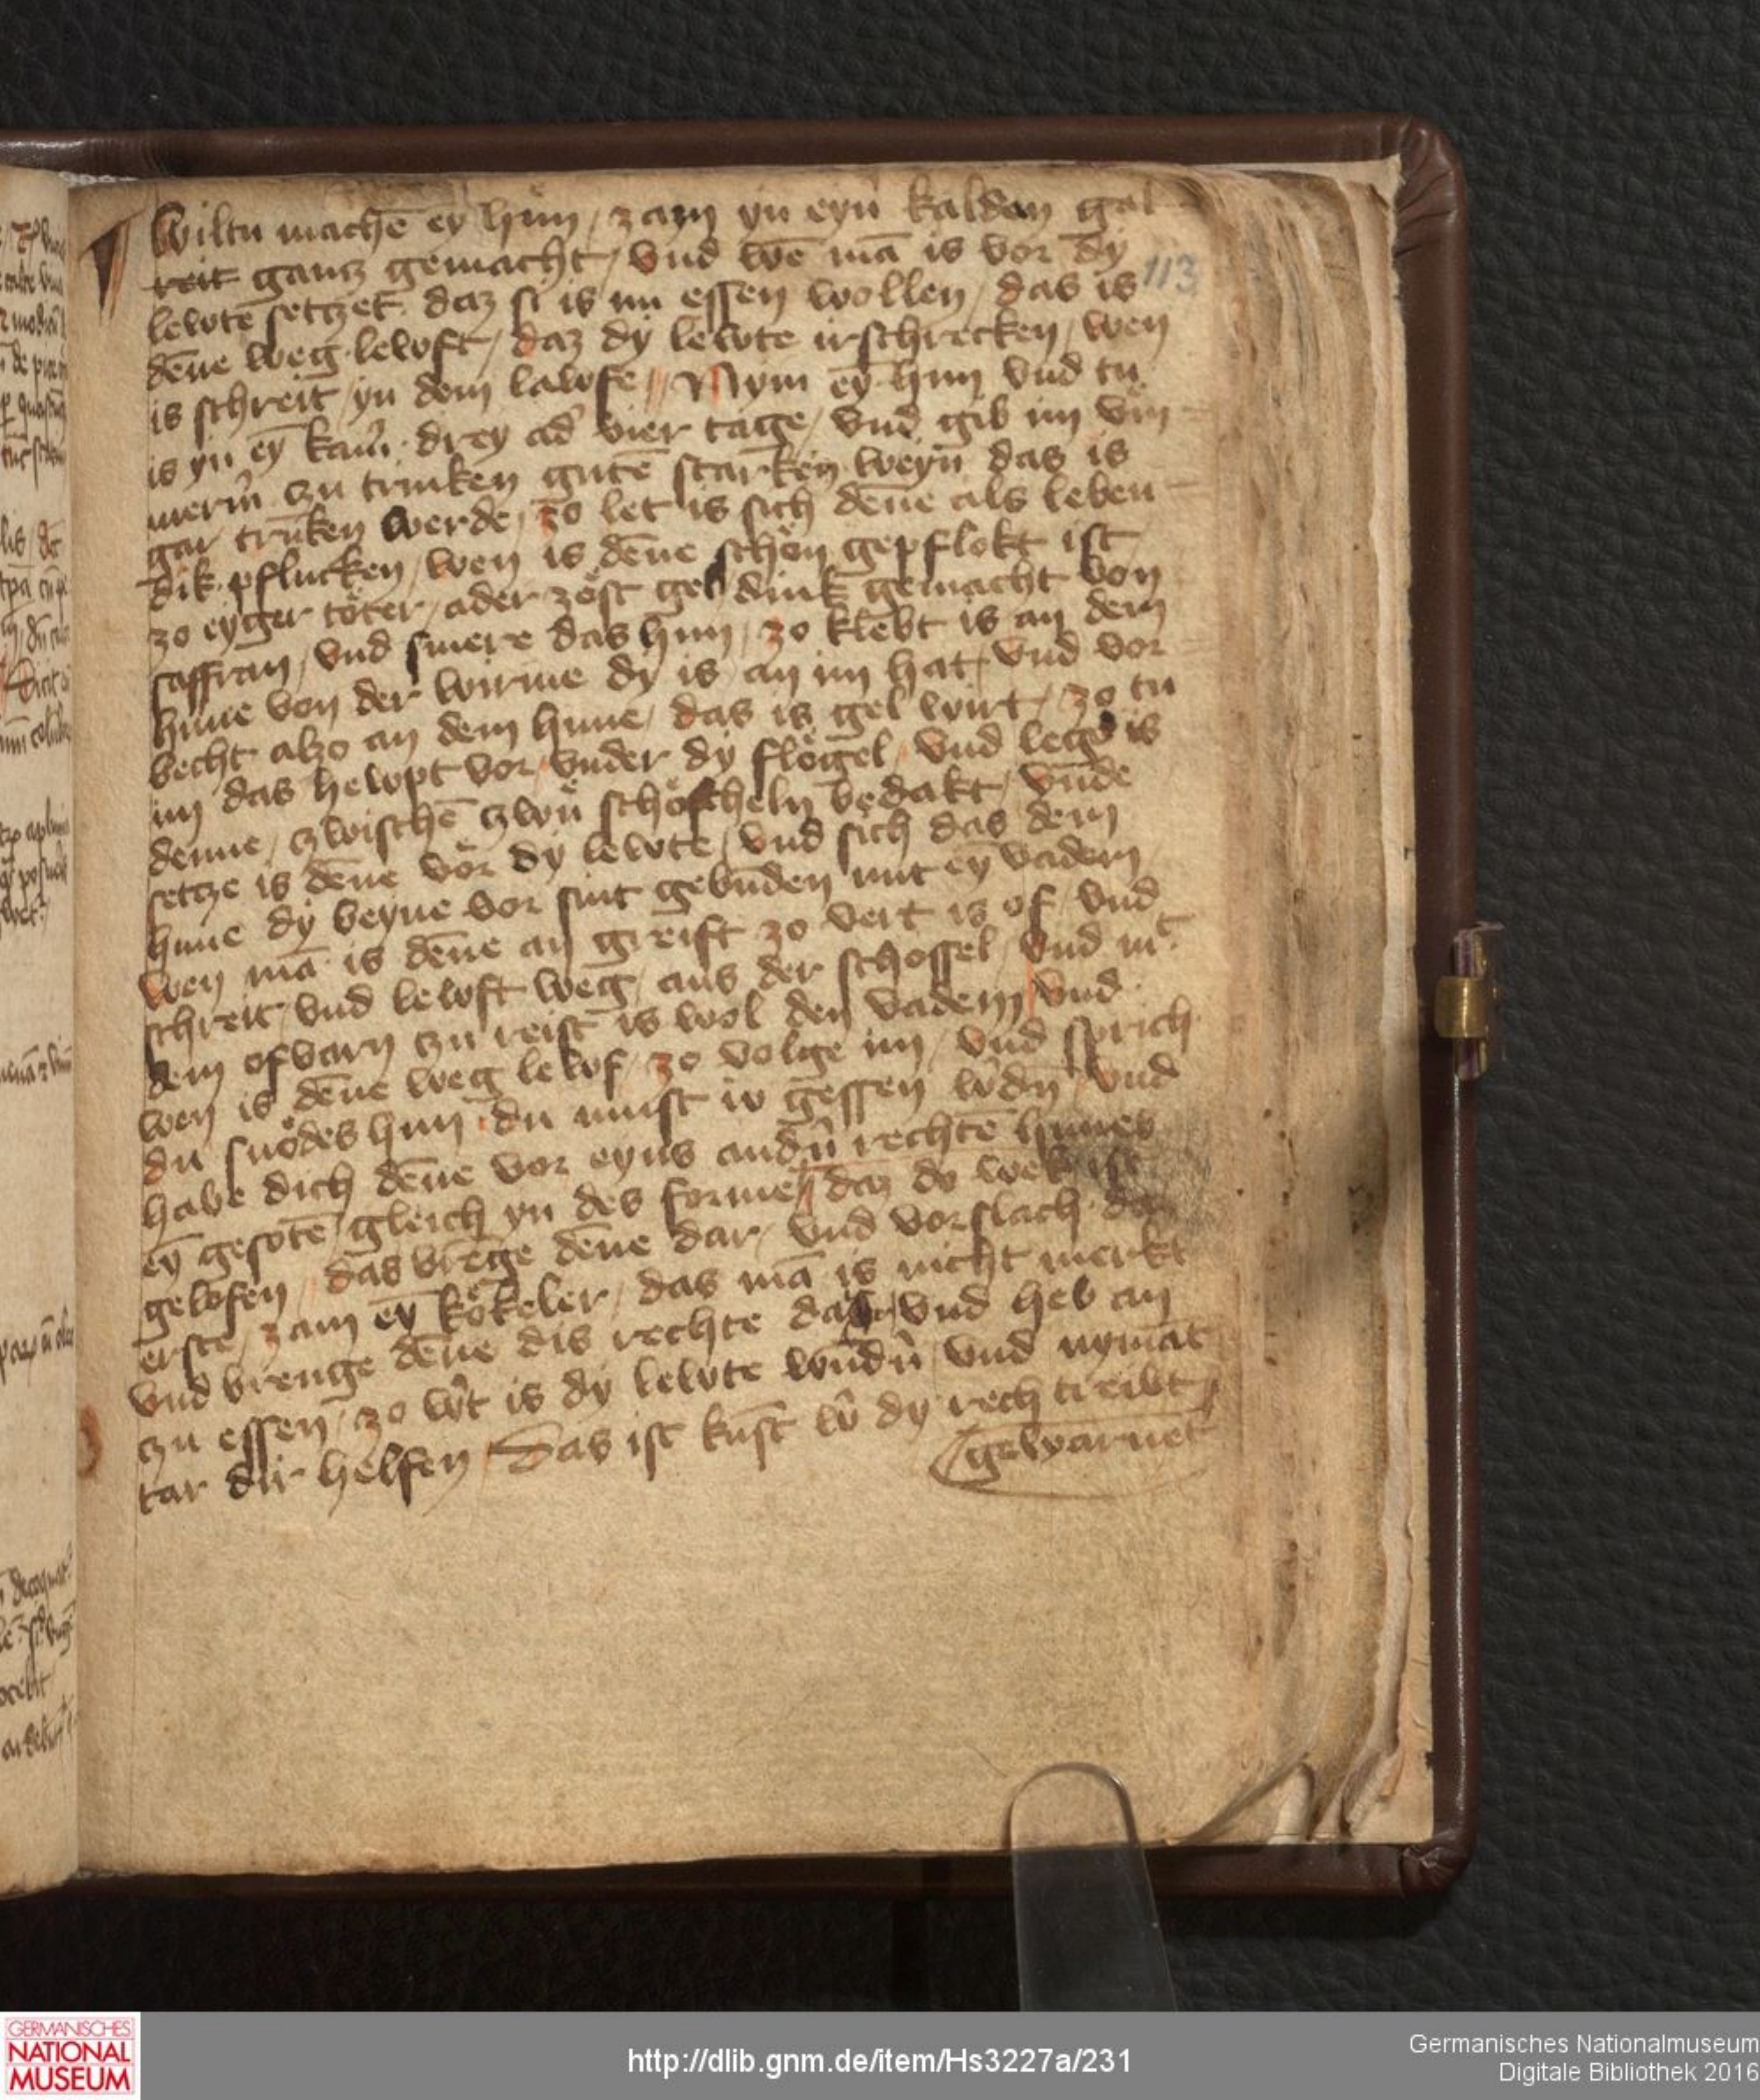 Wiltu machē ey hün / zam yn eyn̄ kalden gal
reit gantz gemacht / vnd wē mā is vor dy
113
lewtē setczet daz si is nu essen wollen / das is
dēne weg lewft / daz dy lewte irschrecken / wen
is schreit / yn dem lawfe // Nym ey hun vnd tu
is yn eȳ kam̄ drey ad' vier tage / vnd gib im vm̄
merm̄ czu trinken gutē starken weyn das is
gar trūken werde / zo let is sich dēne als leben
dik pflucken / wen is dēne schön gepflokt ist
zo eyger töter / ader zöst gel dink gemacht von
saffran / vnd smere das hun / zo klebt is an dem
hune von der wirme dy is an im hat / vnd vor
becht alzo an dem hune / das is gel wirt / zo tu
im das hewpt vor vnder dy flögel / vnd lege is
denne / czwischē czwū schösscheln bedakt / vnde
setcze is dēne vör dy lewte / vnd sich das dem
hune dy beyne vor sint gebūden mit eȳ vadem
wen mā is dēne an greift zo vert is of / vnd
schreit / vnd lewft weg / aus der schossel / vnd mt
dem ofvarn czu reist is wol den vadem / vnd
wen is dēne weg lewf / zo volge im / vnd sprich
du snödes hun du must io gessen w'dn̄ / vnd
habe dich dēne vor eyns and'n̄ rechtē hunes
eȳ gesotē / gleich yn des forme // daz do wek ist
gelofen // das brēge dēne dar / vnd vorslach das
erste / zam eȳ kökeler / das mā is nicht merkt
vnd brenge dēne dis rechte dar / vnd heb an
czu essen / zo w't is dy lewte wūd'n̄ / vnd nymāt
tar dir helfen / Das ist kūst w' dy rech treibt //
gewarnet
GERMANISCHES
NATIONAL
MUSEUM
http://dlib.gnm.de/item/Hs3227a/231
Germanisches Nationalmuseum
Digitale Bibliothek 2016